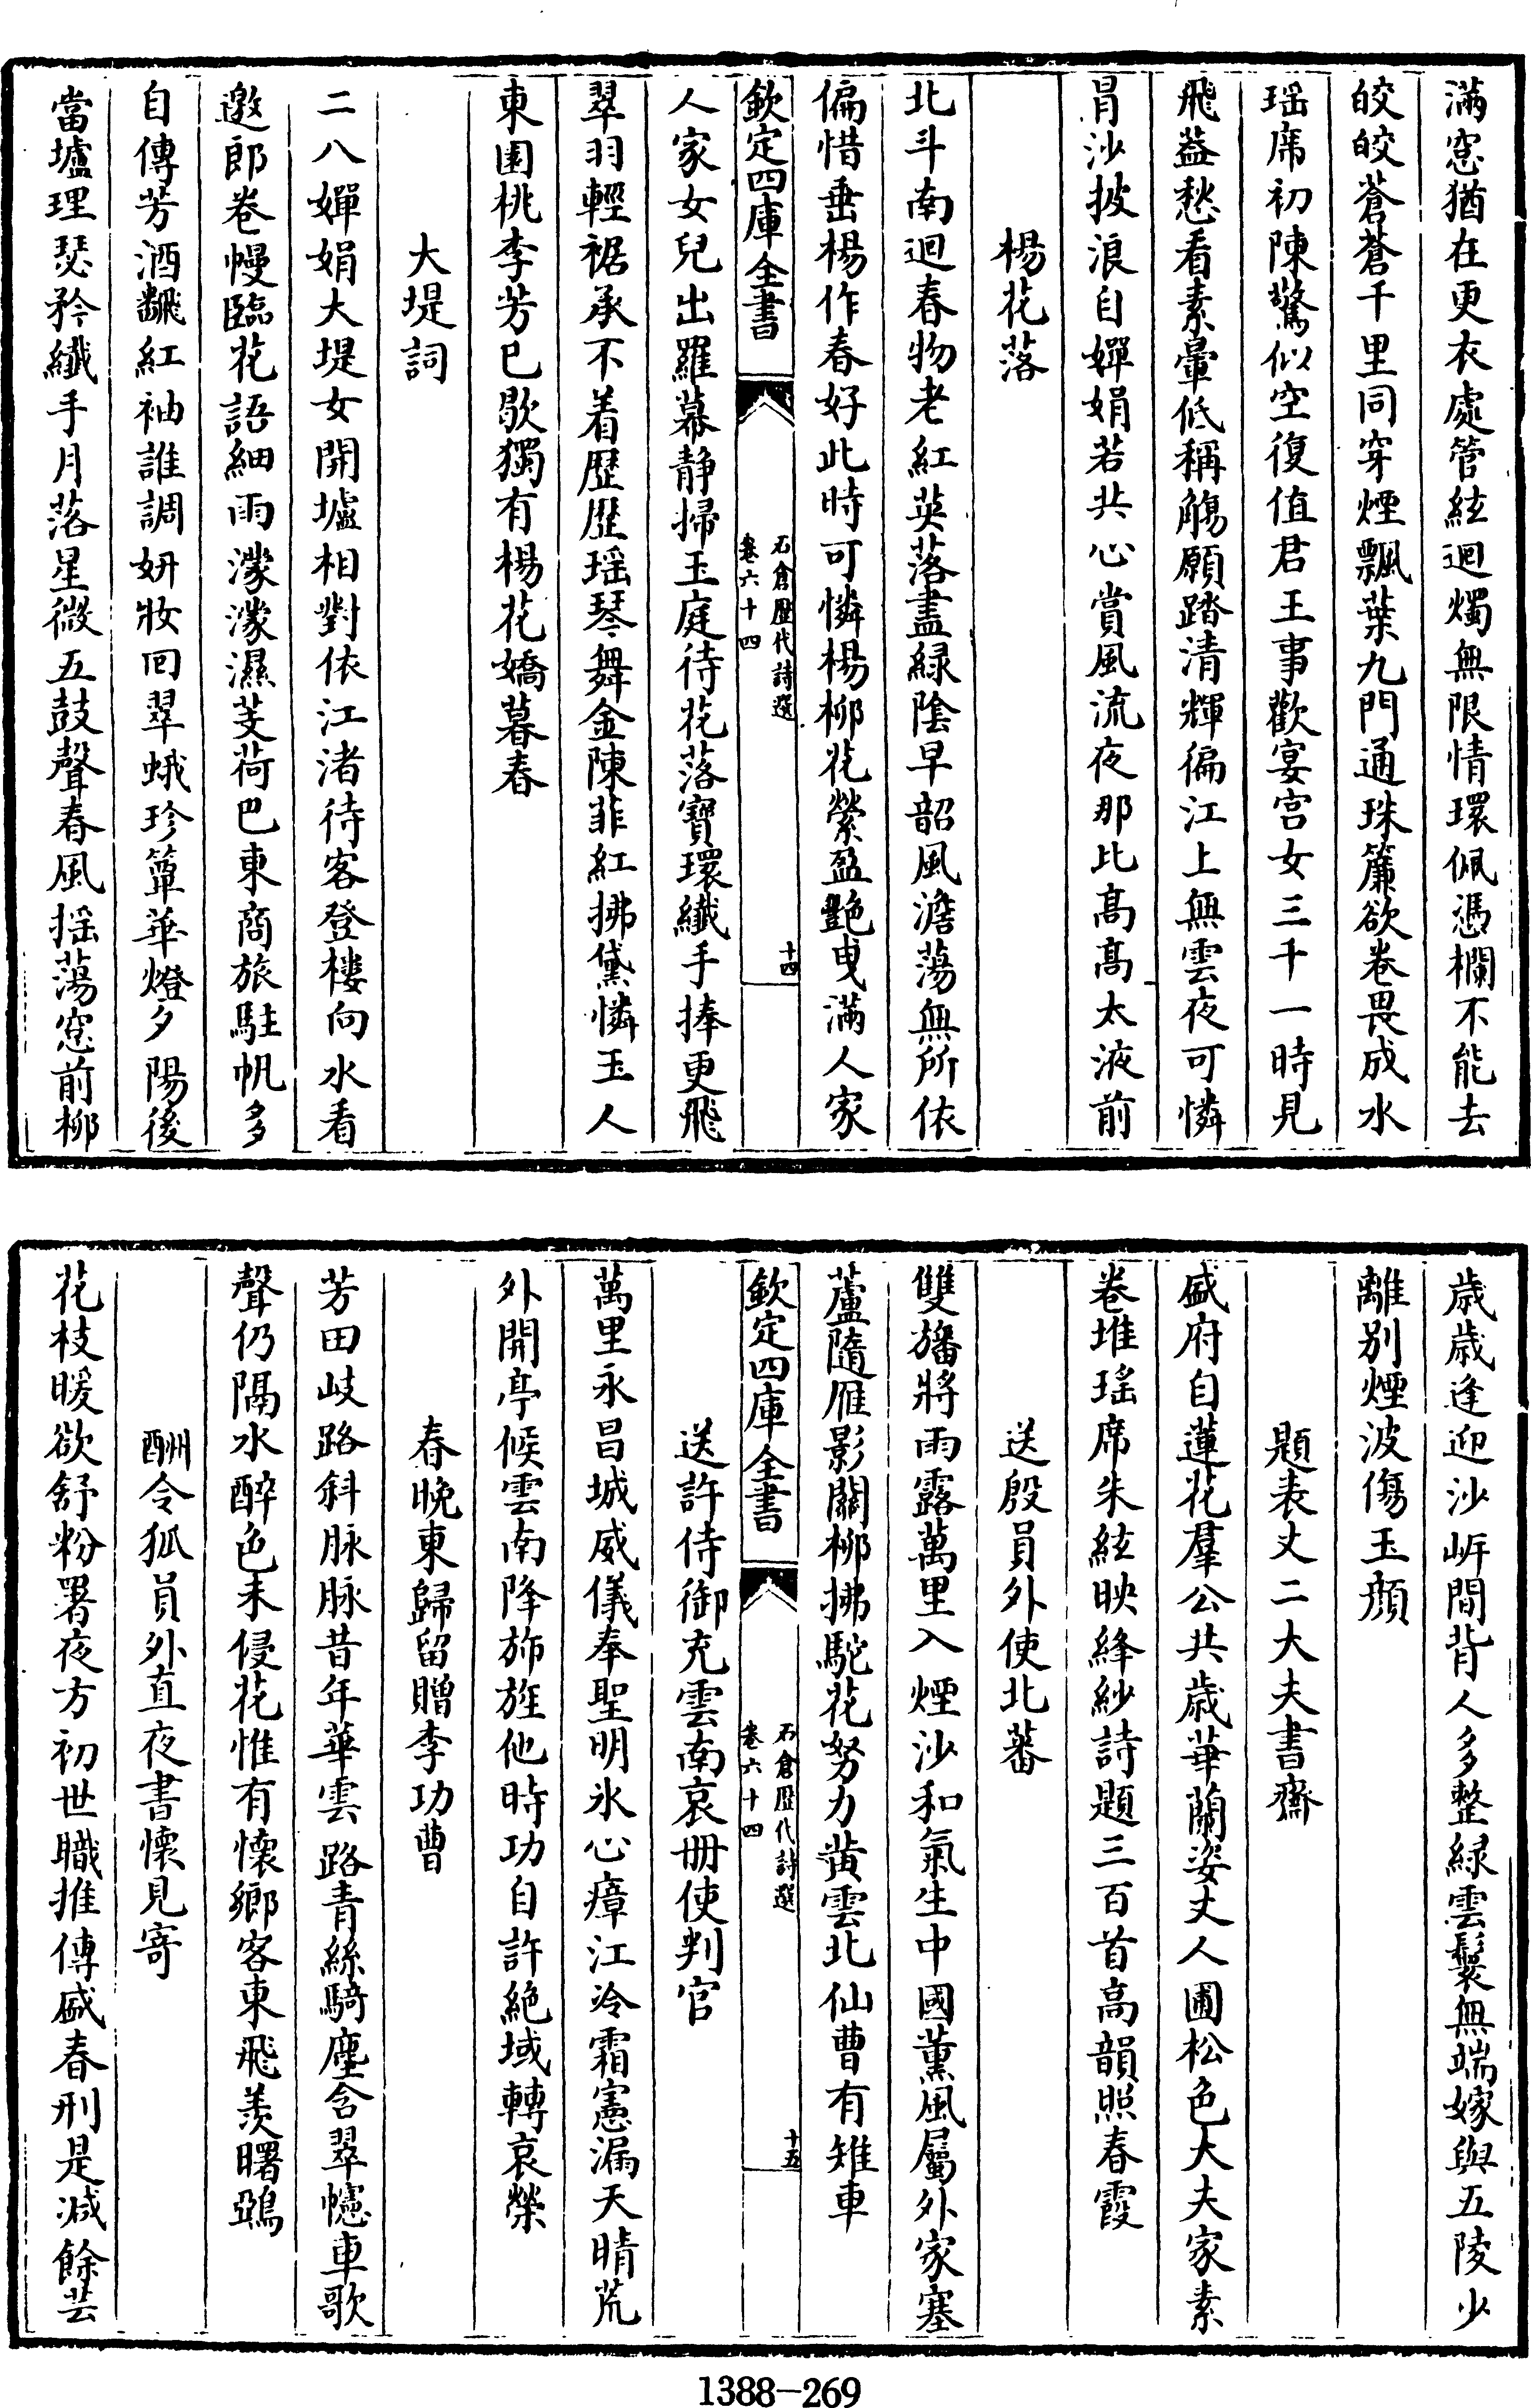 滿窓猶在更衣處管絃迴燭無限情環佩憑欄不能去
皎皎蒼蒼千里同穿煙飄葉九門通珠簾欲卷畏成水
瑶席初陳驚似空復值君王事歡宴宫女三千一時見
飛葢愁看素暈低稱觴願踏清輝偏江上無雲夜可憐
冐沙披浪自嬋娟若共心賞風流夜那比髙髙太液前
楊花落
北斗南迴春物老紅英落盡緑隂早韶風澹蕩無所依
偏惜垂楊作春好此時可憐楊柳花縈盈艷曳滿人家
欽定四庫全書
石倉歴代詩選
卷六十四
十四
人家女兒出羅幕静掃玉庭待花落寳環纎手捧更飛
翠羽輕裾承不着歴歴瑶琴舞金陳菲紅拂黛憐玉人
東園桃李芳已歇獨有楊花嬌暮春
大堤詞
二八嬋娟大堤女開壚相對依江渚待客登樓向水看
邀郎卷幔臨花語細雨濛濛濕芰荷巴東商旅駐帆多
自傳芳酒飜紅袖誰調妍妝回翠蛾珍簟華燈夕陽後
當壚理瑟矜纎手月落星微五鼓聲春風揺蕩窓前柳
歳歳逢迎沙岸間背人多整緑雲鬟無端嫁與五陵少
離别煙波傷玉顔
題表丈二大夫書齋
盛府自蓮花羣公共歳華蘭姿丈人圃松色大夫家素
卷堆瑶席朱絃映絳紗詩題三百首高韻照春霞
送殷員外使北蕃
雙旛將雨露萬里入煙沙和氣生中國薰風屬外家塞
蘆隨雁影關柳拂駝花努力黄雲北仙曹有雉車
欽定四庫全書
石倉歴代詩選
卷六十四
十五
送許侍御充雲南哀册使判官
萬里永昌城威儀奉聖明氷心瘴江冷霜憲漏天晴荒
外開亭候雲南降斾旌他時功自許絶域轉哀榮
春晚東歸留贈李功曹
芳田岐路斜脉脉昔年華雲路青絲騎塵含翠幰車歌
聲仍隔水醉色未侵花惟有懷鄉客東飛羨曙鵶
酬令狐員外直夜書懷見寄
花枝暖欲舒粉署夜方初世職推傳盛春刑是减餘芸
1388-269